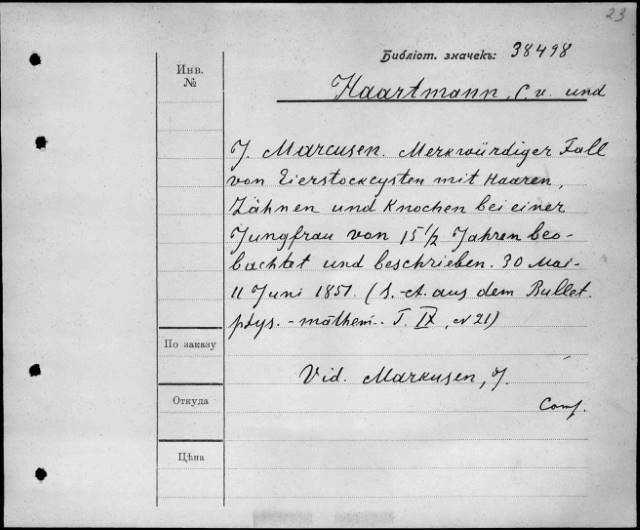 23
Библіот. значекъ: 38498
Инв.
№
Haartmann, C. v. und
J. Marcusen. Merkwürdiger Fall
von Eierstockcysten mit Haaren,
Zähnen und Knochen bei einer
Jungfrau von 15 1/2 Jahren beo-
bachtet und beschrieben. 30 Mai-
11 Juni 1851. (S.-A. aus dem Bullet.
phys.-mathém. T. IX, № 21)
По заказу
Vid. Markusen, J.
Откуда
Conf.
Цѣна